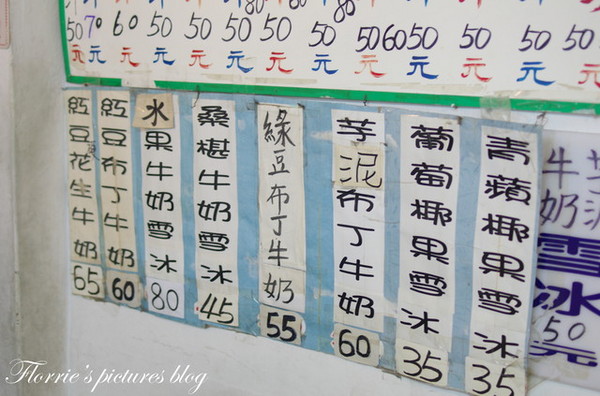 50 70 60 50 50 50 50 50 50 60 50 50 50 50
元 元 元 元 元 元 元 元 元 元 元 元 元
紅豆花生牛奶 65
紅豆布丁牛奶 60
水果牛奶雪冰 80
桑椹牛奶雪冰 45
綠豆布丁牛奶 55
芋泥布丁牛奶 60
葡萄椰果雪冰 35
青蘋椰果雪冰 35
牛奶
雪冰
50元
Florrie's pictures blog